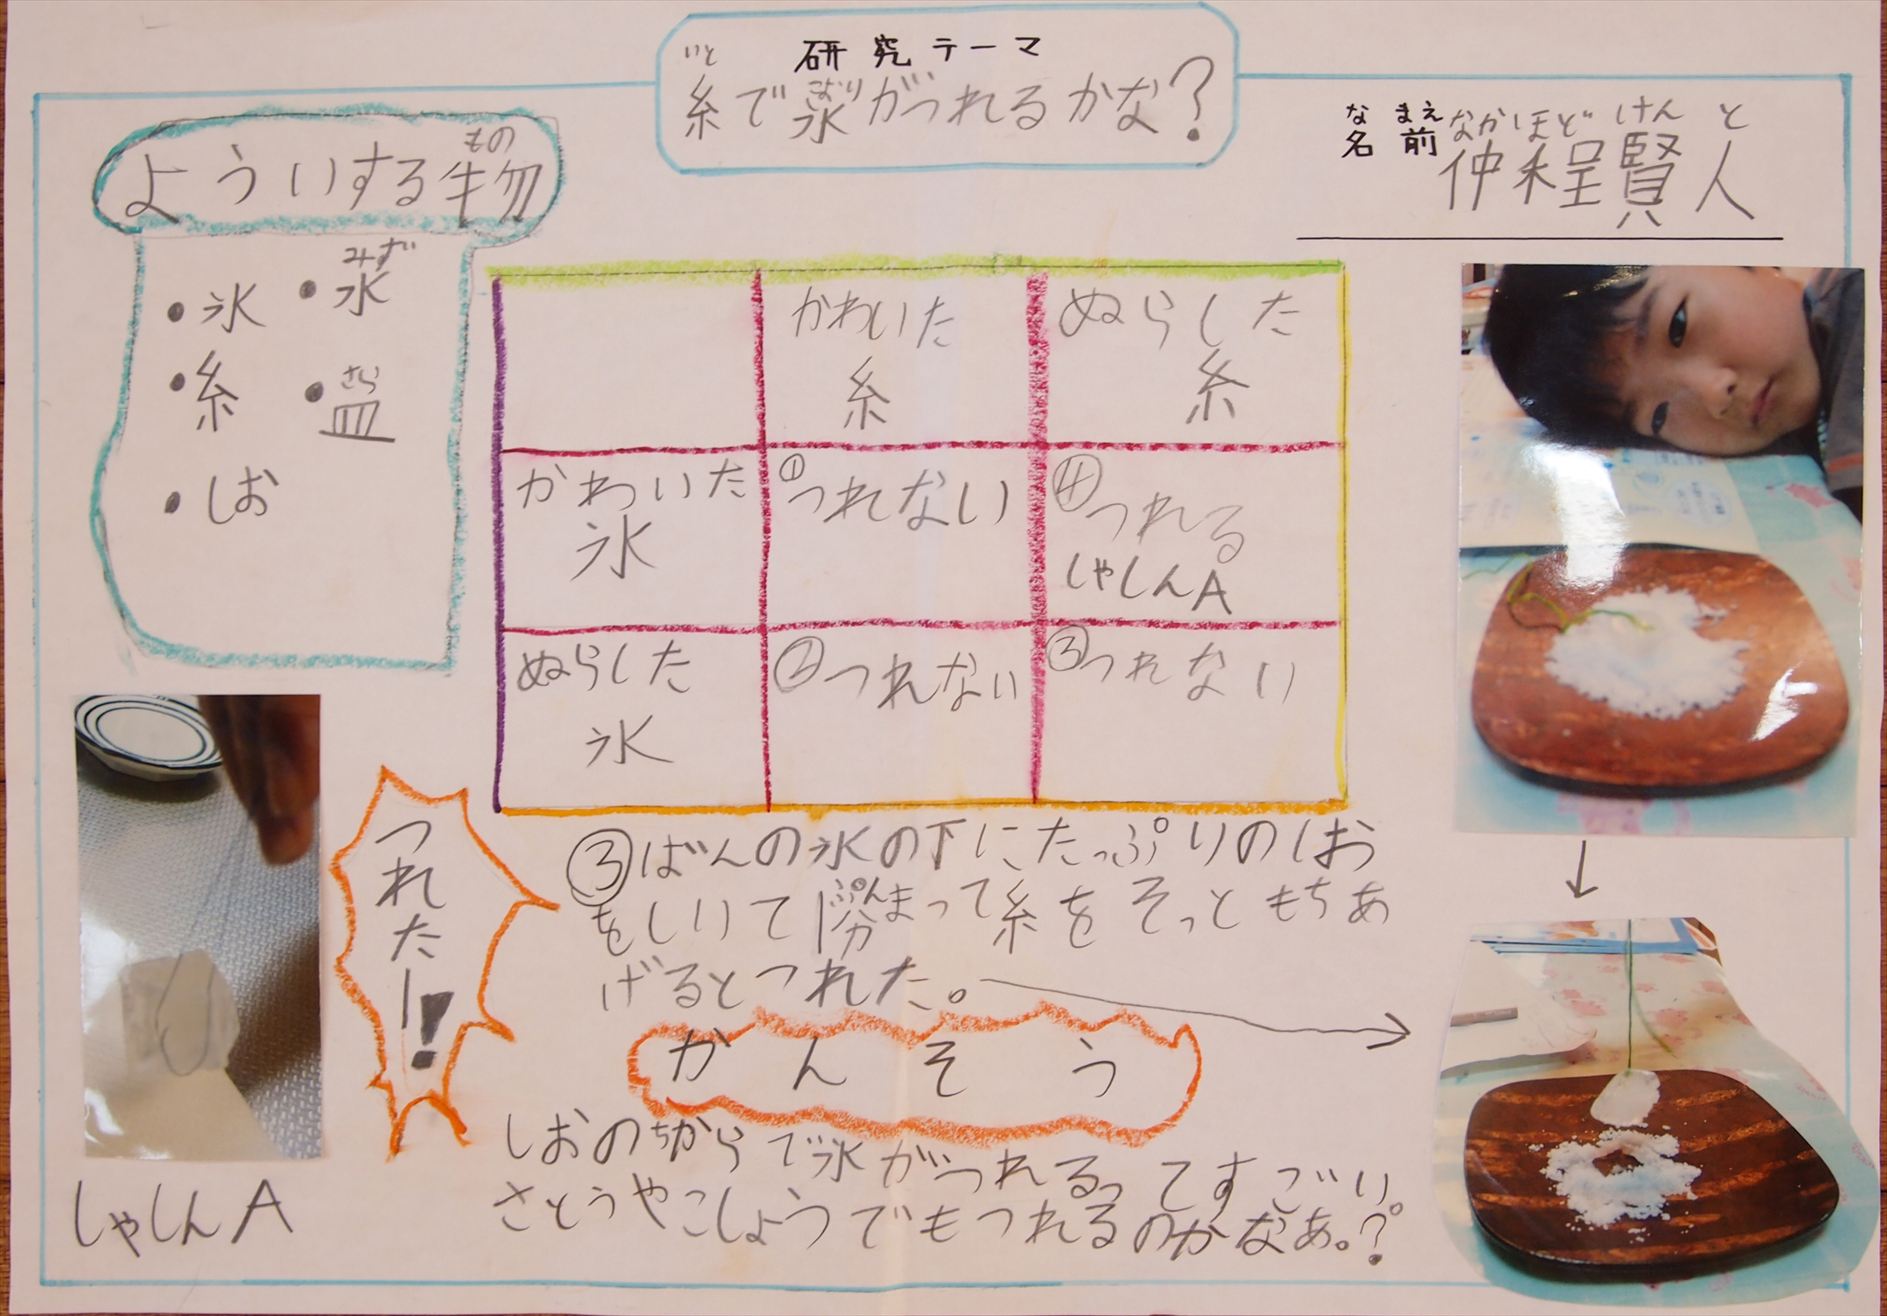 研究テーマ
いと こおり
糸で氷がつれるかな?
なまえ なかほど けんと
名前 仲程賢人
もの
よういする物
みず
・氷 ・水
さら
・糸 ・皿
・しお
かわいた ぬらした
糸 糸
かわいた ①つれない ④つれる
氷 しゃしんA
ぬらした ②つれない ③つれない
氷
つれたー!
しゃしんA
③ばんの氷の下にたっぷりのしお
ぷん
をしいて1分まって糸をそっともちあ
げるとつれた。
かんそう
しおのちからで氷がつれるってすごい
さとうやこしょうでもつれるのかなあ。?